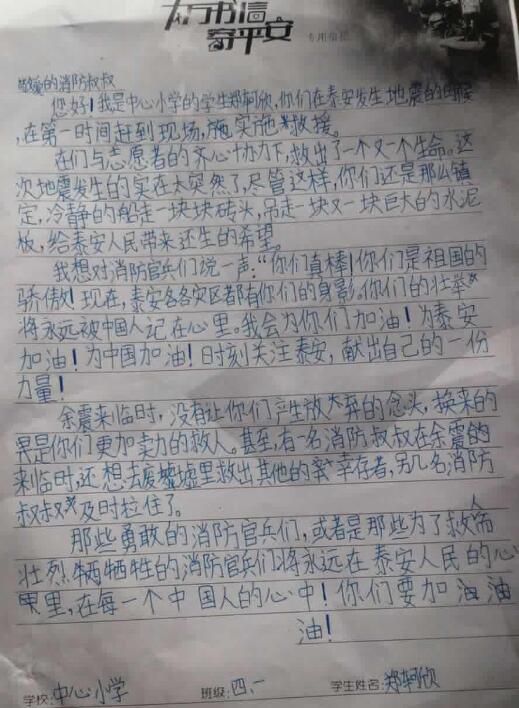 书信
寄平安
敬爱的消防叔叔
您好!我是中心小学的学生郑轲欣,你们在泰安发生地震的时候
,在第一时间赶到现场,施实施救援。
在们与志愿者的齐心协力下,救出了一个又一个生命。这
次地震发生的实在太突然了,尽管这样,你们还是那么镇
定,冷静的船走一块块砖头,吊走一块又一块巨大的水泥
板,给泰安人民带来还生的希望。
我想对消防官兵们说一声:“你们真棒!你们是祖国的
骄傲!现在,泰安各各灾区都有你们的身影。你们的壮举
将永远被中国人记在心里。我会为你们加油!为泰安
加油!为中国加油!时刻关注泰安,献出自己的一份
力量!
余震来临时,没有让你们产生放弃的念头,换来的
果是你们更加卖力的救人。甚至,有一名消防叔叔在余震的
来临时,还想去废墟里救出其他的幸存者,另几名消防
叔叔及时拉住了。
那些勇敢的消防官兵们,或者是那些为了救人而
壮烈牺牺牲的消防官兵们将永远在泰安人民的心
里,在每一个中国人的心中!你们要加油
油!
学校:中心小学 班级:四、一 学生姓名:郑轲欣